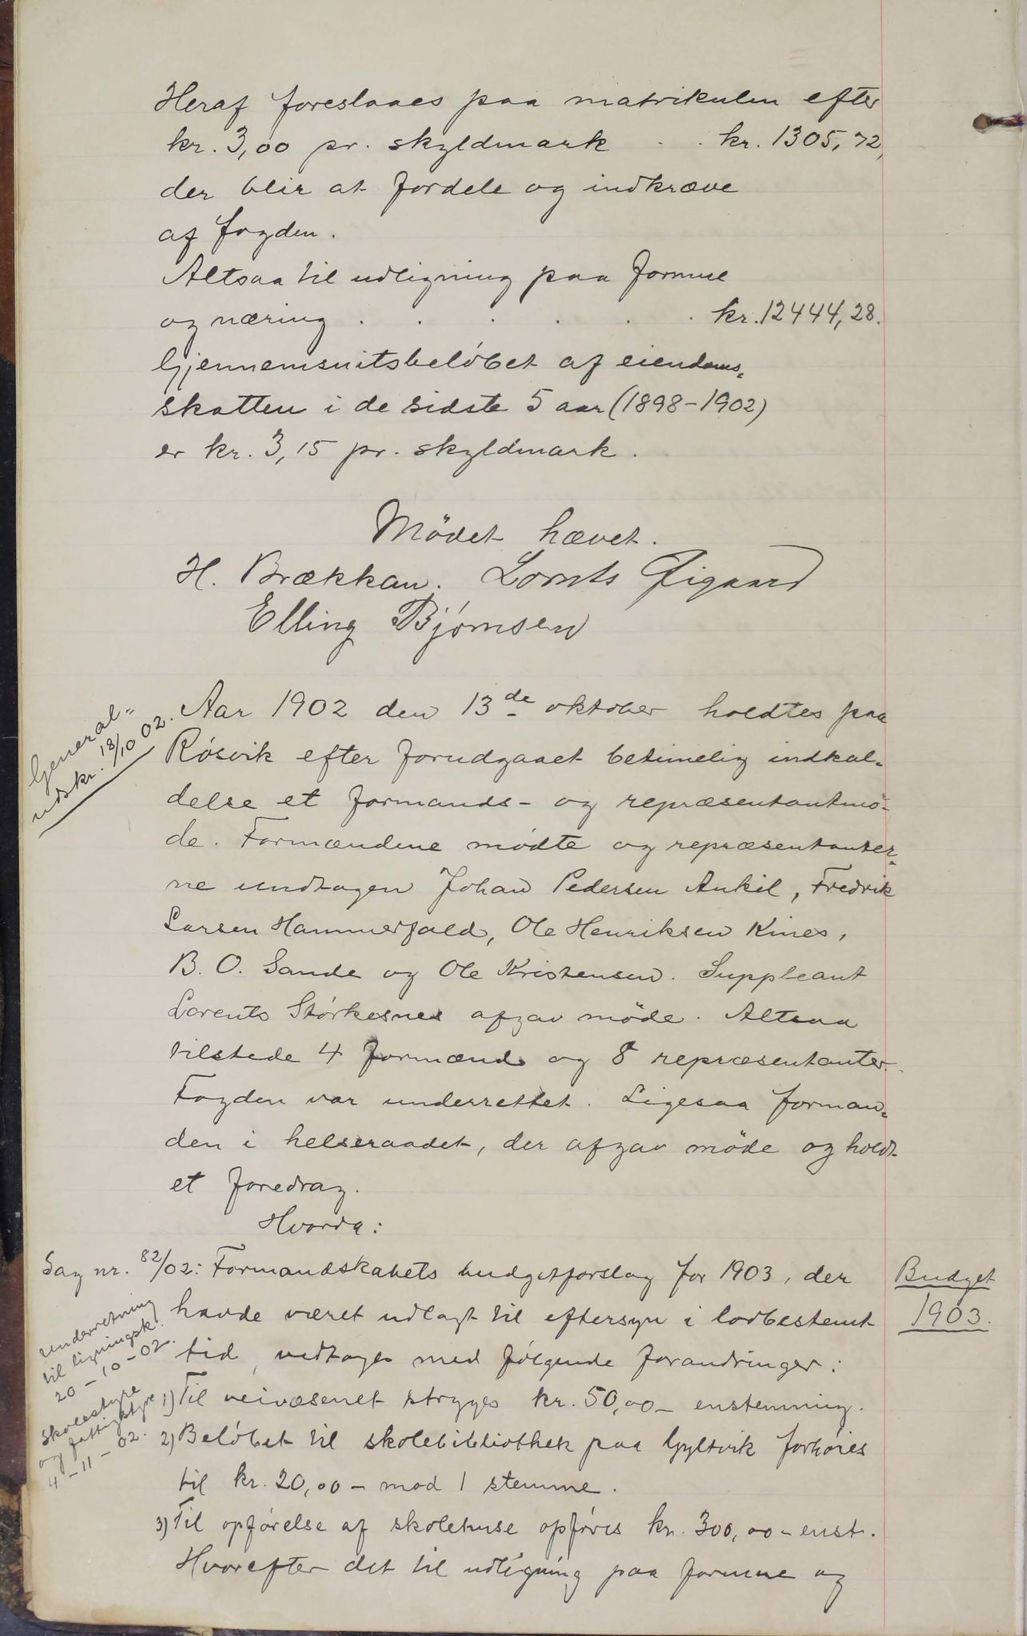 Heraf foreslaaes paa matrikulen efter
kr. 3,00 pr. skyldmark . . kr. 1305,72,
der blir at fordele og indkræve
af fogden.
Altsaa til udligning paa formue
og næring . . . . . . kr. 12444,28.
Gjennemsnitsbeløbet af eiendoms-
skatten i de sidste 5 aar (1898-1902)
er kr. 3,15 pr. skyldmark.
Mödet hævet.
H. Brækkan. Lornts Øigaard
Elling Bjørnsen
General-
udskr. 18/10 02.
Aar 1902 den 13de oktober holdtes paa
Røsvik efter forudgaaet betimelig indkal-
delse et formands- og repræsentantmö-
de. Formændene mødte og repræsentanter-
ne undtagen Johan Pedersen Ankil, Fredrik
Larsen Hammerfald, Ole Henriksen Kines,
B. O. Sande og Ole Kristensen. Suppleant
Lorents Størkesnes afgav möde. Altsaa
tilstede 4 formænd og 8 repræsentanter.
Fogden var underrettet. Ligesaa forman-
den i helseraadet, der afgav möde og holdt
et foredrag.
Hvorda:
Sag nr. 82/02: Formandskabets budgetforslag for 1903, der
Budget
1903.
havde været udlagt til eftersyn i lovbestemt
tid, vedtoges med følgende forandringer:
underretning
til ligningsk.
20-10-02
skolestyre
og fattigstyre
4-11-02.
1) Til veivæsenet stryges kr. 50,00 - enstemmig.
2) Beløbet til skolebibliothek paa Gyltvik forhøies
til kr. 20,00 - mod 1 stemme.
3) Til opførelse af skolehuse opføres kr. 300,00 - enst.
Hvorefter det til udligning paa formue og